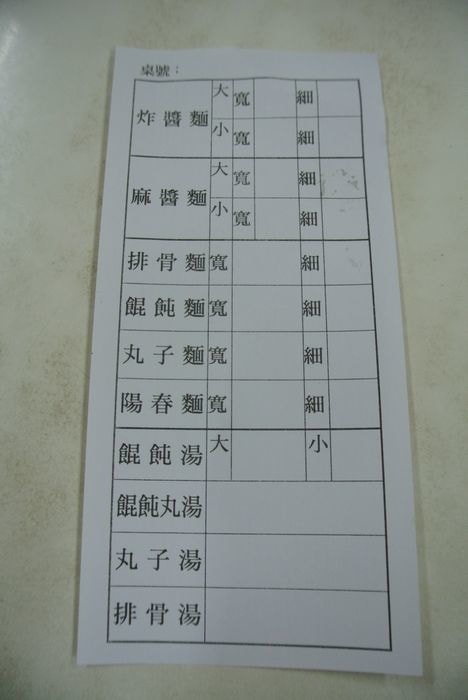 桌號：
炸醬麵 大 寬 細
小 寬 細
麻醬麵 大 寬 細
小 寬 細
排骨麵 寬 細
餛飩麵 寬 細
丸子麵 寬 細
陽春麵 寬 細
餛飩湯 大 小
餛飩丸湯
丸子湯
排骨湯